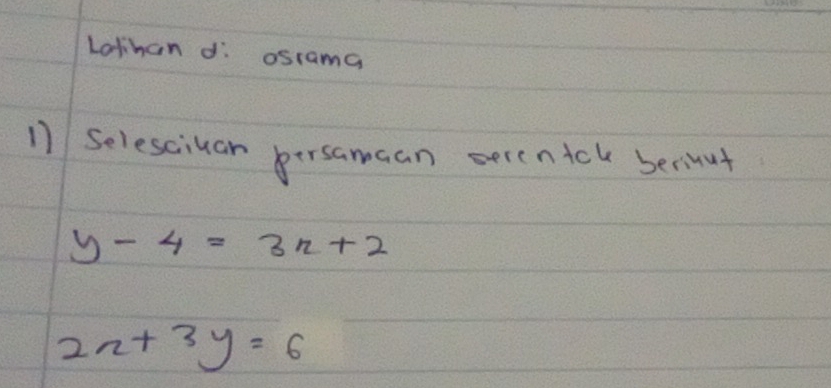 Latihan di asrama
1) Selesaikan persamaan serentak berikut
y - 4 = 3x + 2
2x + 3y = 6